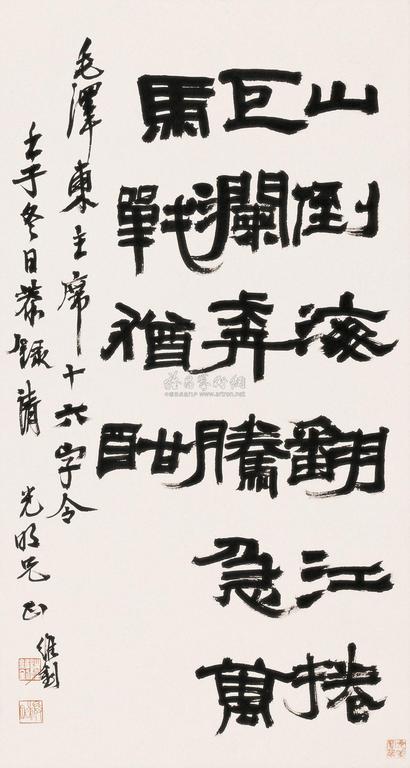 山倒海翻江捲
巨瀾奔騰急萬
馬戰猶酣
毛澤東主席十六字令
壬子冬日恭錄請 光明兄正 維釗